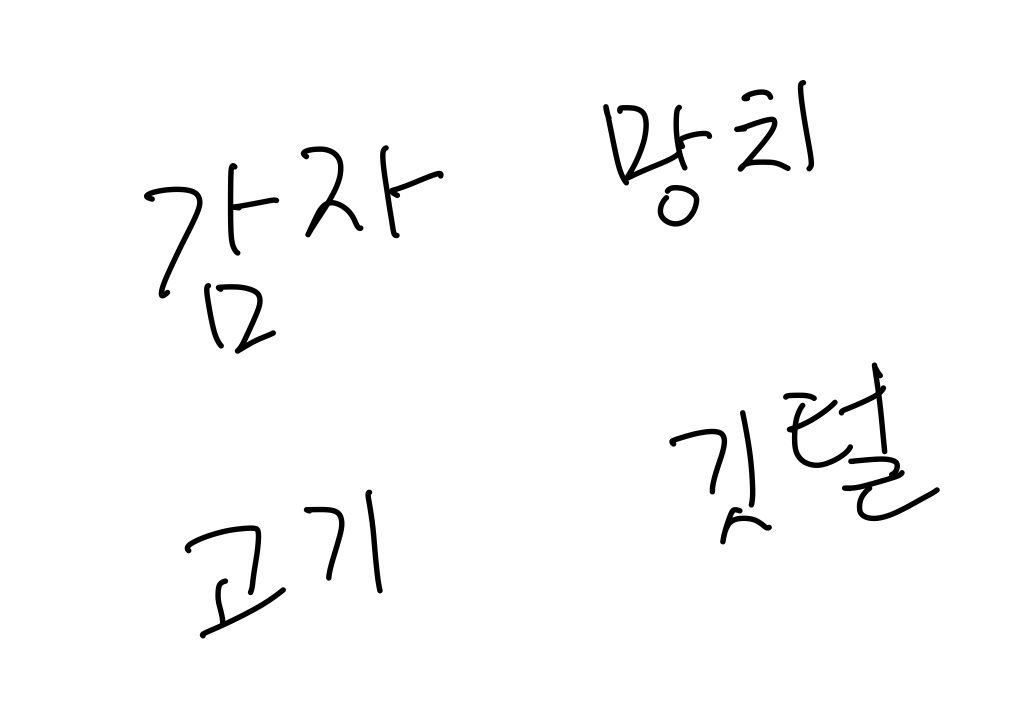 감자 망치
고기 깃털